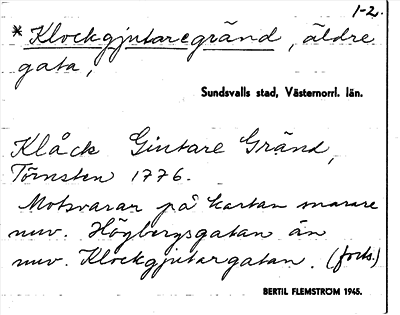 1-2.
* Klockgjutaregränd, äldre
gata,
Sundsvalls stad, Västernorrl. län.
Klåck Giutare Gränd,
Törnsten 1776.
Motsvarar på kartan snarare
nuv. Högbergsgatan än
nuv. Klockgjutargatan. (forts.)
BERTIL FLEMSTRÖM 1945.